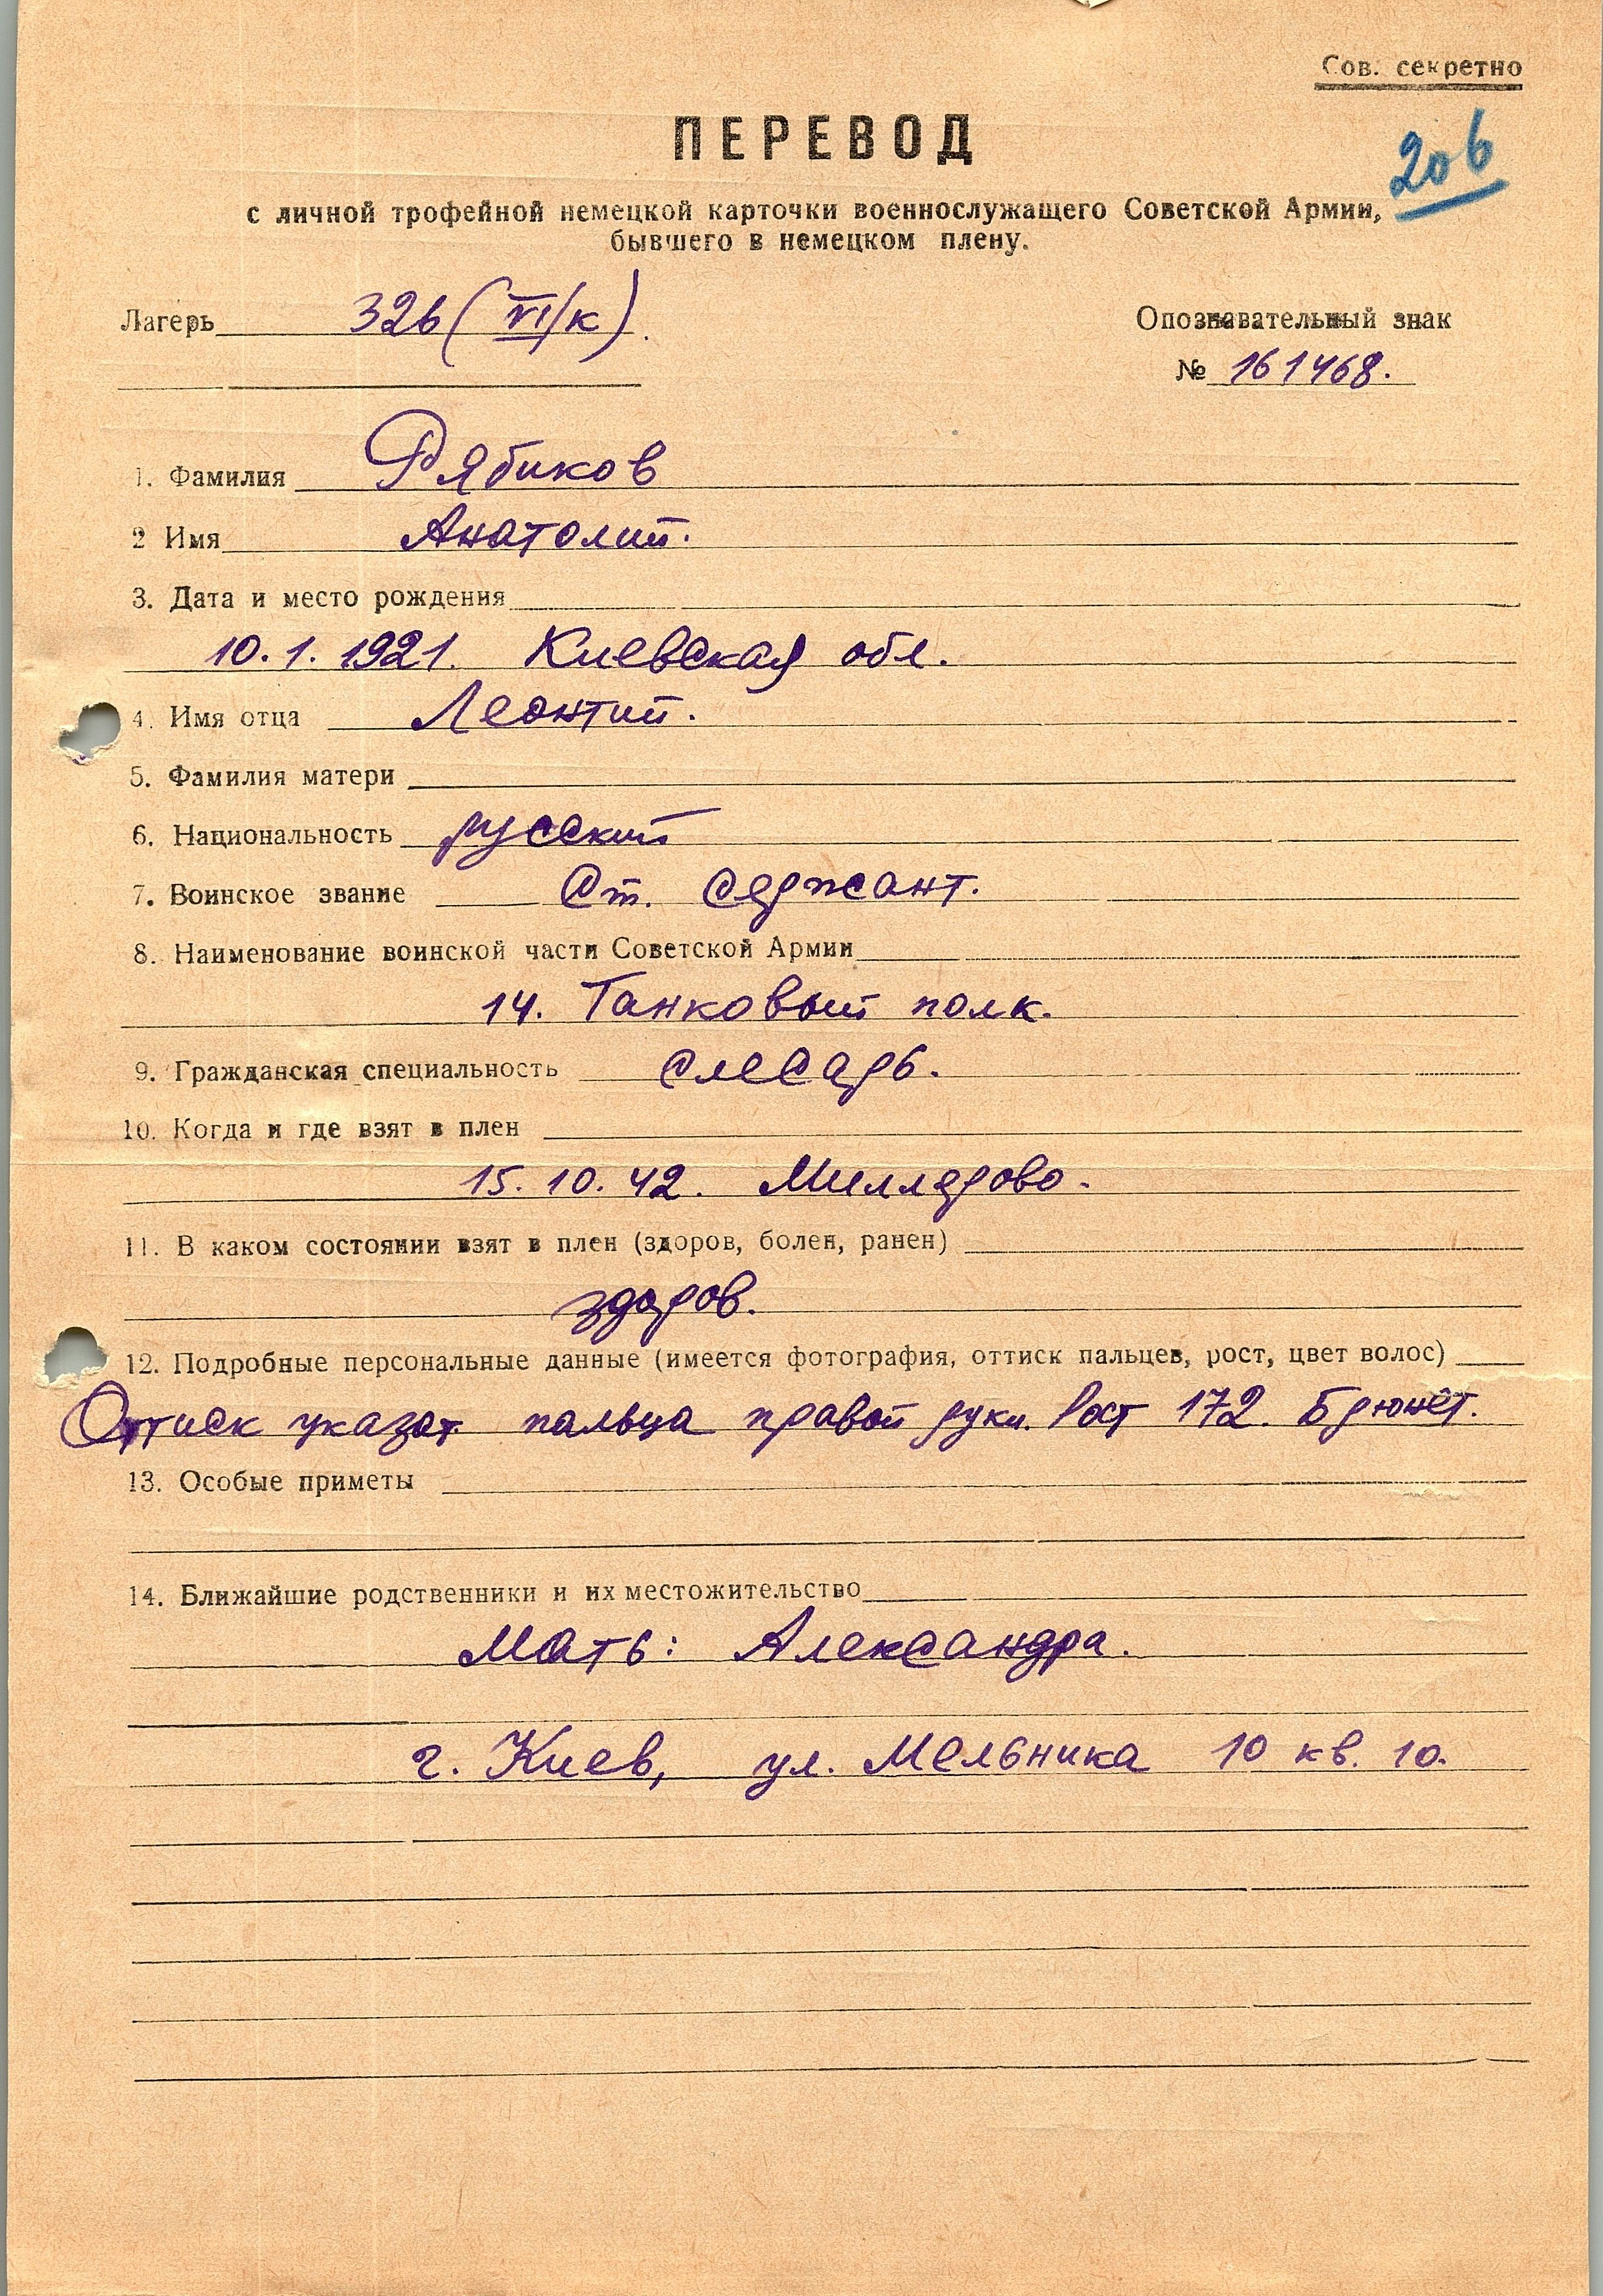 Сов. секретно
ПЕРЕВОД
206
с личной трофейной немецкой карточки военнослужащего Советской Армии,
бывшего в немецком плену.
Лагерь 326 (VI/к).
Опознавательный знак
№ 161468.
1. Фамилия Рябиков
2 Имя Анатолий.
3. Дата и место рождения
10.1.1921. Киевская обл.
4. Имя отца Леонтий.
5. Фамилия матери
6. Национальность русский
7. Воинское звание Ст. сержант.
8. Наименование воинской части Советской Армии
14. Танковый полк.
9. Гражданская специальность слесарь.
10. Когда и где взят в плен
15.10.42. Миллерово.
11. В каком состоянии взят в плен (здоров, болен, ранен)
здоров.
12. Подробные персональные данные (имеется фотография, оттиск пальцев, рост, цвет волос)
Оттиск указат. пальца правой руки. Рост 172. Брюнет.
13. Особые приметы
14. Ближайшие родственники и их местожительство
Мать: Александра.
г. Киев, ул. Мельника 10 кв. 10.